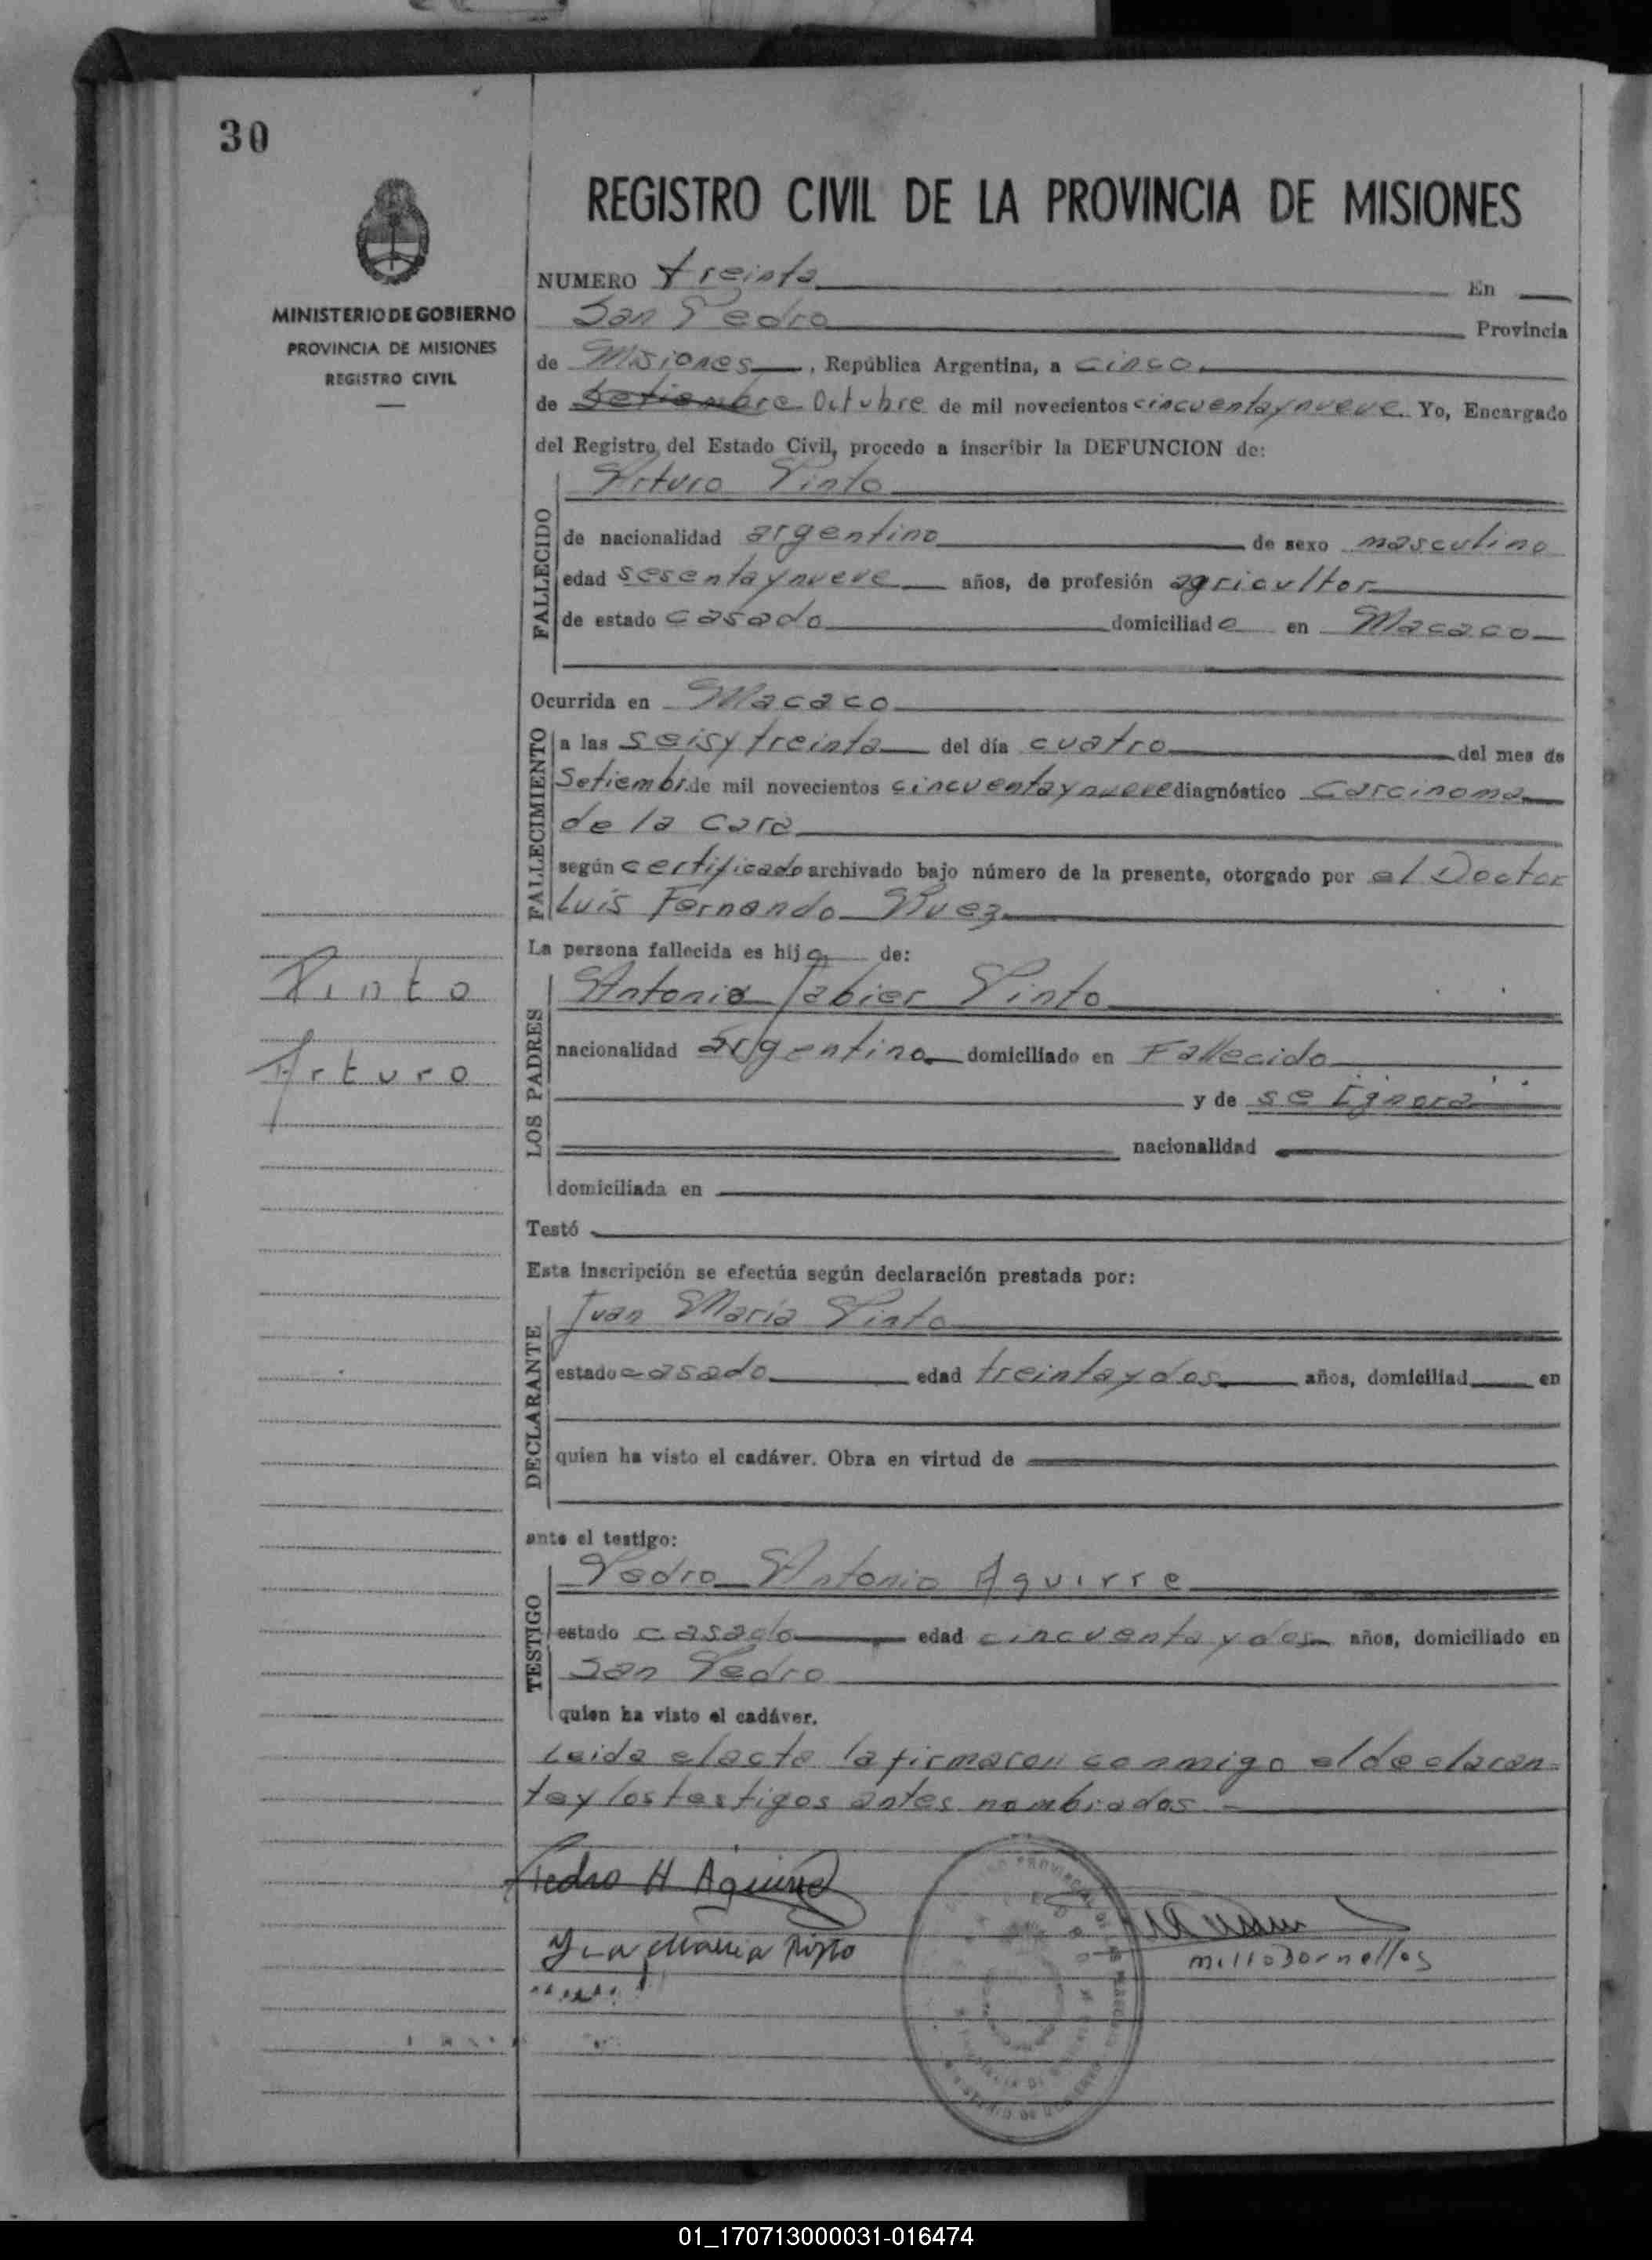 30
REGISTRO CIVIL DE LA PROVINCIA DE MISIONES
MINISTERIO DE GOBIERNO
PROVINCIA DE MISIONES
REGISTRO CIVIL
NUMERO treinta En
San Pedro Provincia
de Misiones, República Argentina, a cinco
de Setiembre Octubre de mil novecientos cincuenta y nueve. Yo, Encargado
del Registro del Estado Civil, procedo a inscribir la DEFUNCION de:
FALLECIDO
Arturo Pinto
de nacionalidad argentino de sexo masculino
edad sesenta y nueve años, de profesión agricultor
de estado casado domiciliado en Macaco
Ocurrida en Macaco
FALLECIMIENTO
a las seis y treinta del día cuatro del mes de
Setiembr. de mil novecientos cincuenta y nueve diagnóstico Carcinoma
de la cara
según certificado archivado bajo número de la presente, otorgado por el Doctor
Luis Fernando
La persona fallecida es hijo de:
LOS PADRES
Antonio Jabier Pinto
nacionalidad argentino domiciliado en Fallecido
y de se Ignora
nacionalidad
domiciliada en
Pinto
Arturo
Testó
Esta inscripción se efectúa según declaración prestada por:
DECLARANTE
Juan María Pinto
estado casado edad treinta y dos años, domiciliad en
quien ha visto el cadáver. Obra en virtud de
ante el testigo:
TESTIGO
Pedro Antonio Aguirre
estado casado edad cincuenta y dos años, domiciliado en
San Pedro
quien ha visto el cadáver.
Leida el acta la firmaron conmigo el declaran-
te y los testigos antes nombrados -
Pedro A Aguirre
Juan Maria Pinto
01_170713000031-016474